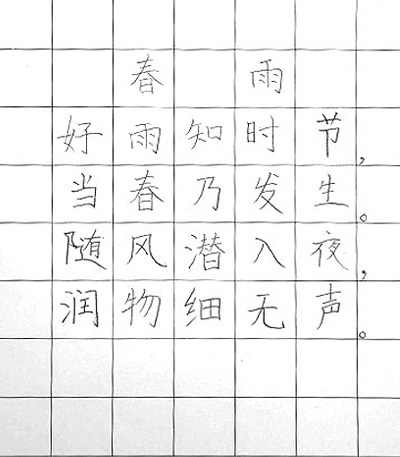 春雨
好雨知时节，
当春乃发生。
随风潜入夜，
润物细无声。